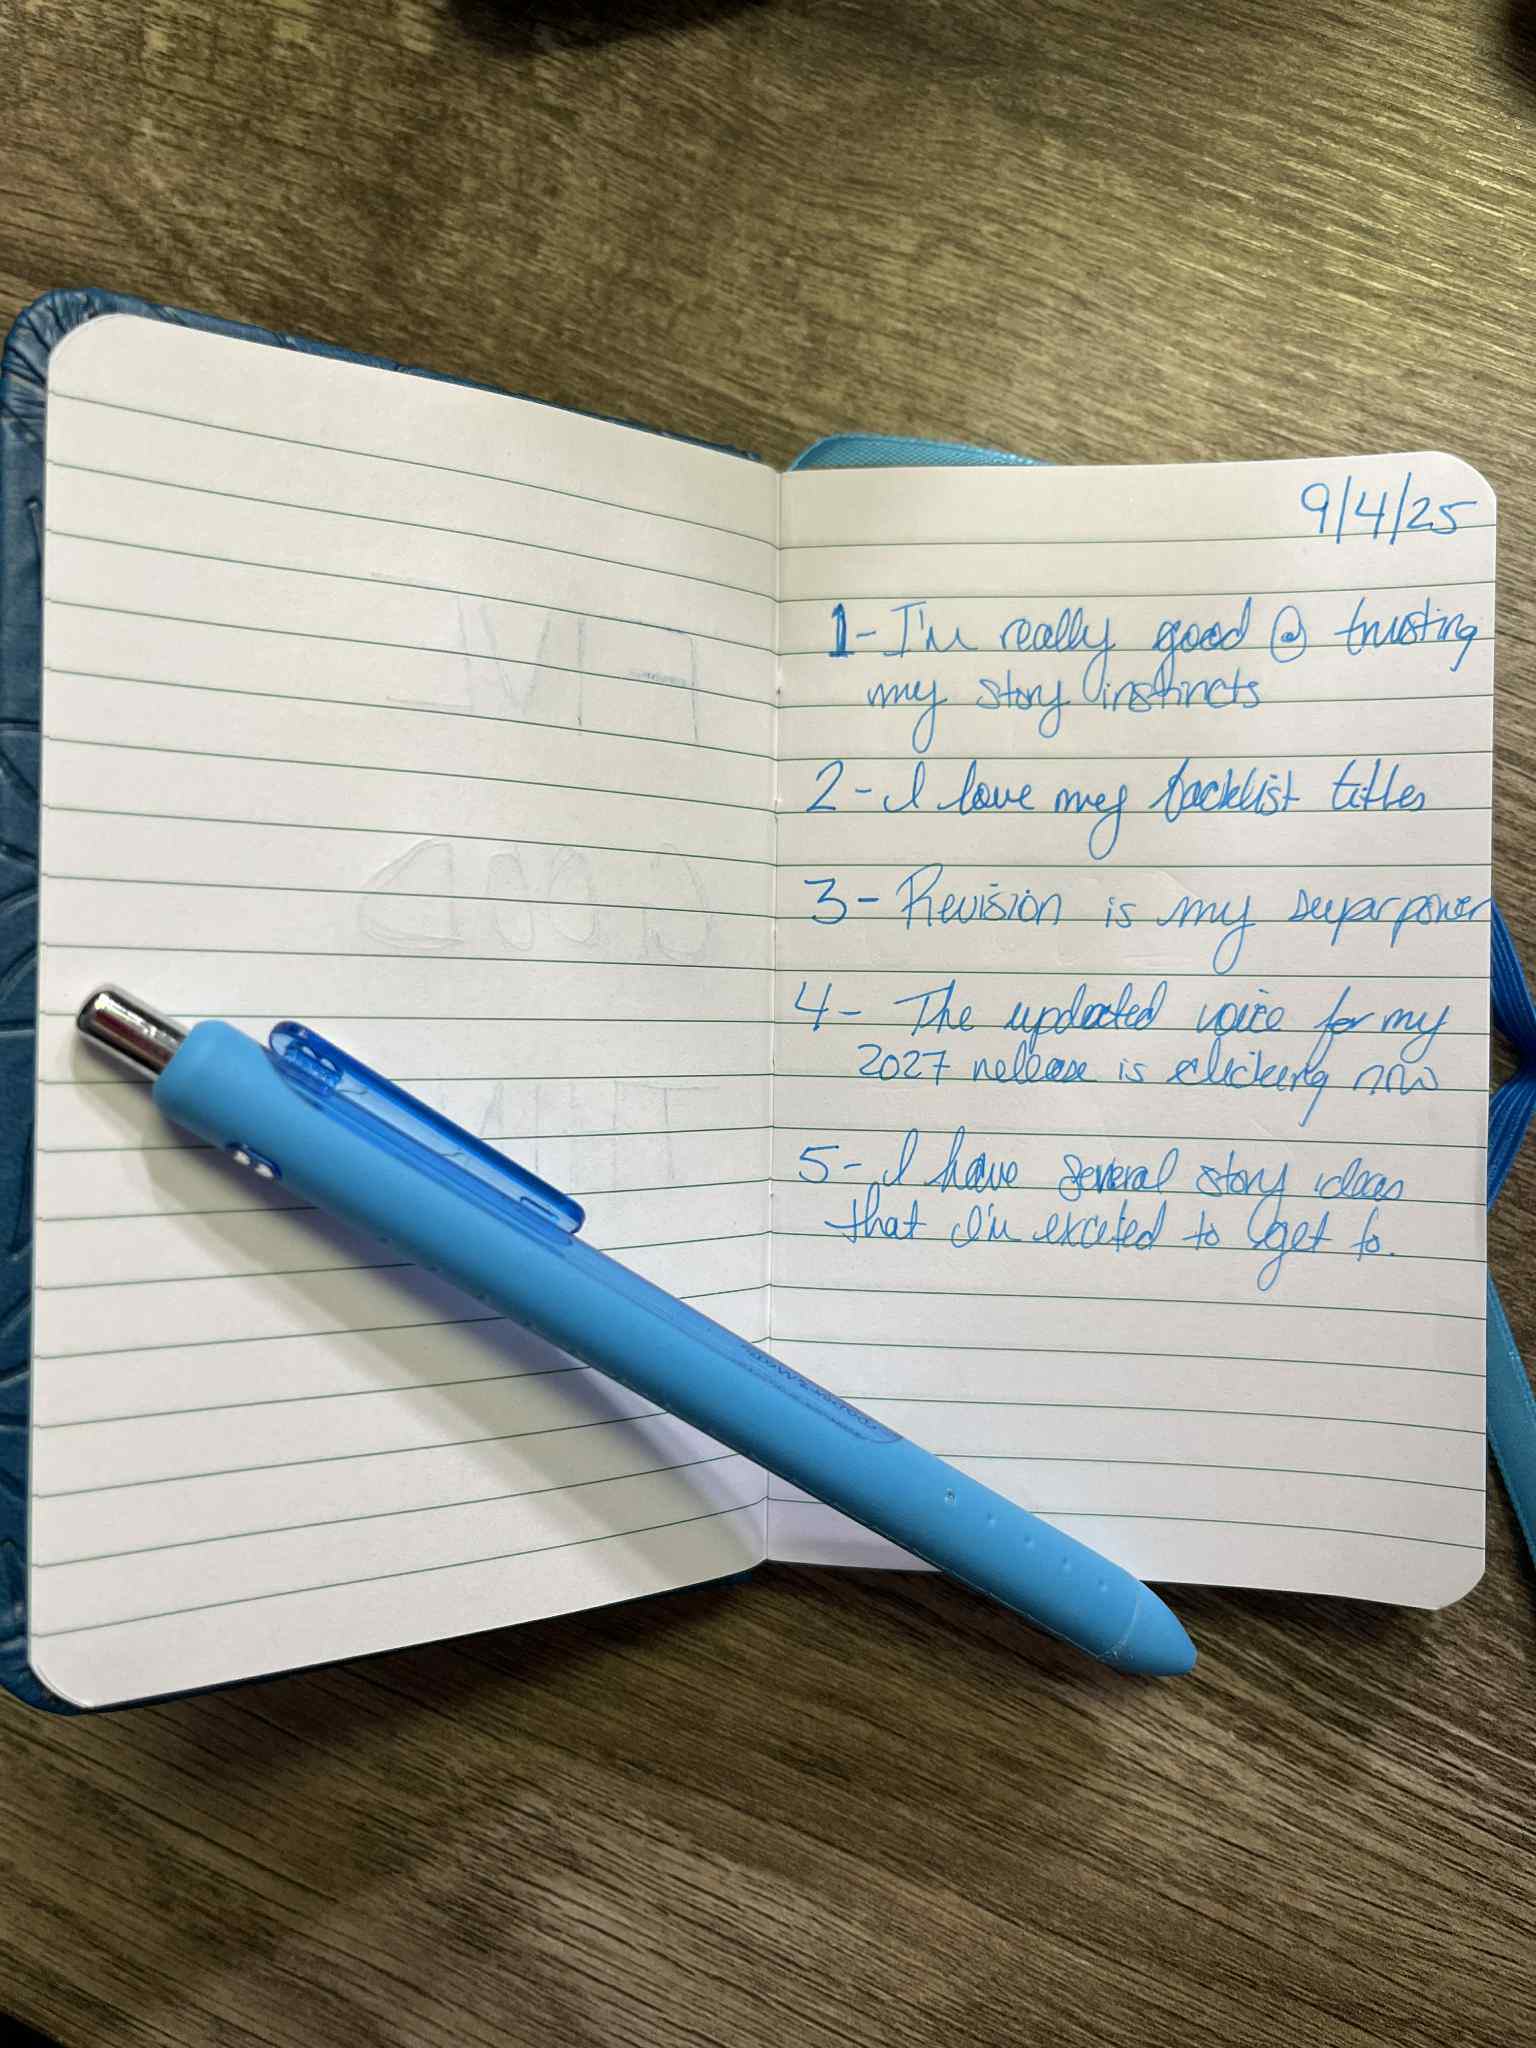 9/4/25
1- I'm really good @ trusting
my story instincts
2- I love my backlist titles
3- Revision is my superpower
4- The updated voice for my
2027 release is clicking now
5- I have several story ideas
that I'm excited to get to.